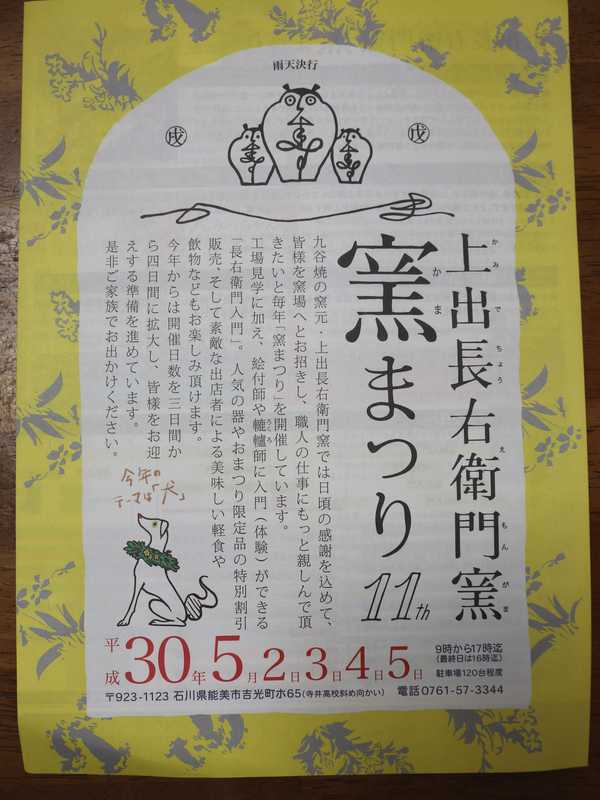 雨天決行
戌
戌
上出長右衛門窯
かみでちょうえもんがま
窯まつり
かま
11th
九谷焼の窯元・上出長右衛門窯では日頃の感謝を込めて、
皆様を窯場へとお招きし、職人の仕事にもっと親しんで頂
きたいと毎年「窯まつり」を開催しています。
工場見学に加え、絵付師や轆轤師に入門（体験）ができる
ろくろ
「長右衛門入門」。人気の器やおまつり限定品の特別割引
販売、そして素敵な出店者による美味しい軽食や
飲物などもお楽しみ頂けます。
今年からは開催日数を三日間か
ら四日間に拡大し、皆様をお迎
えする準備を進めています。
是非ご家族でお出かけください。
今年の
テーマは「犬」
平成30年5月2日3日4日5日
9時から17時迄
(最終日は16時迄)
駐車場120台程度
〒923-1123 石川県能美市吉光町ホ65(寺井高校斜め向かい) 電話0761-57-3344